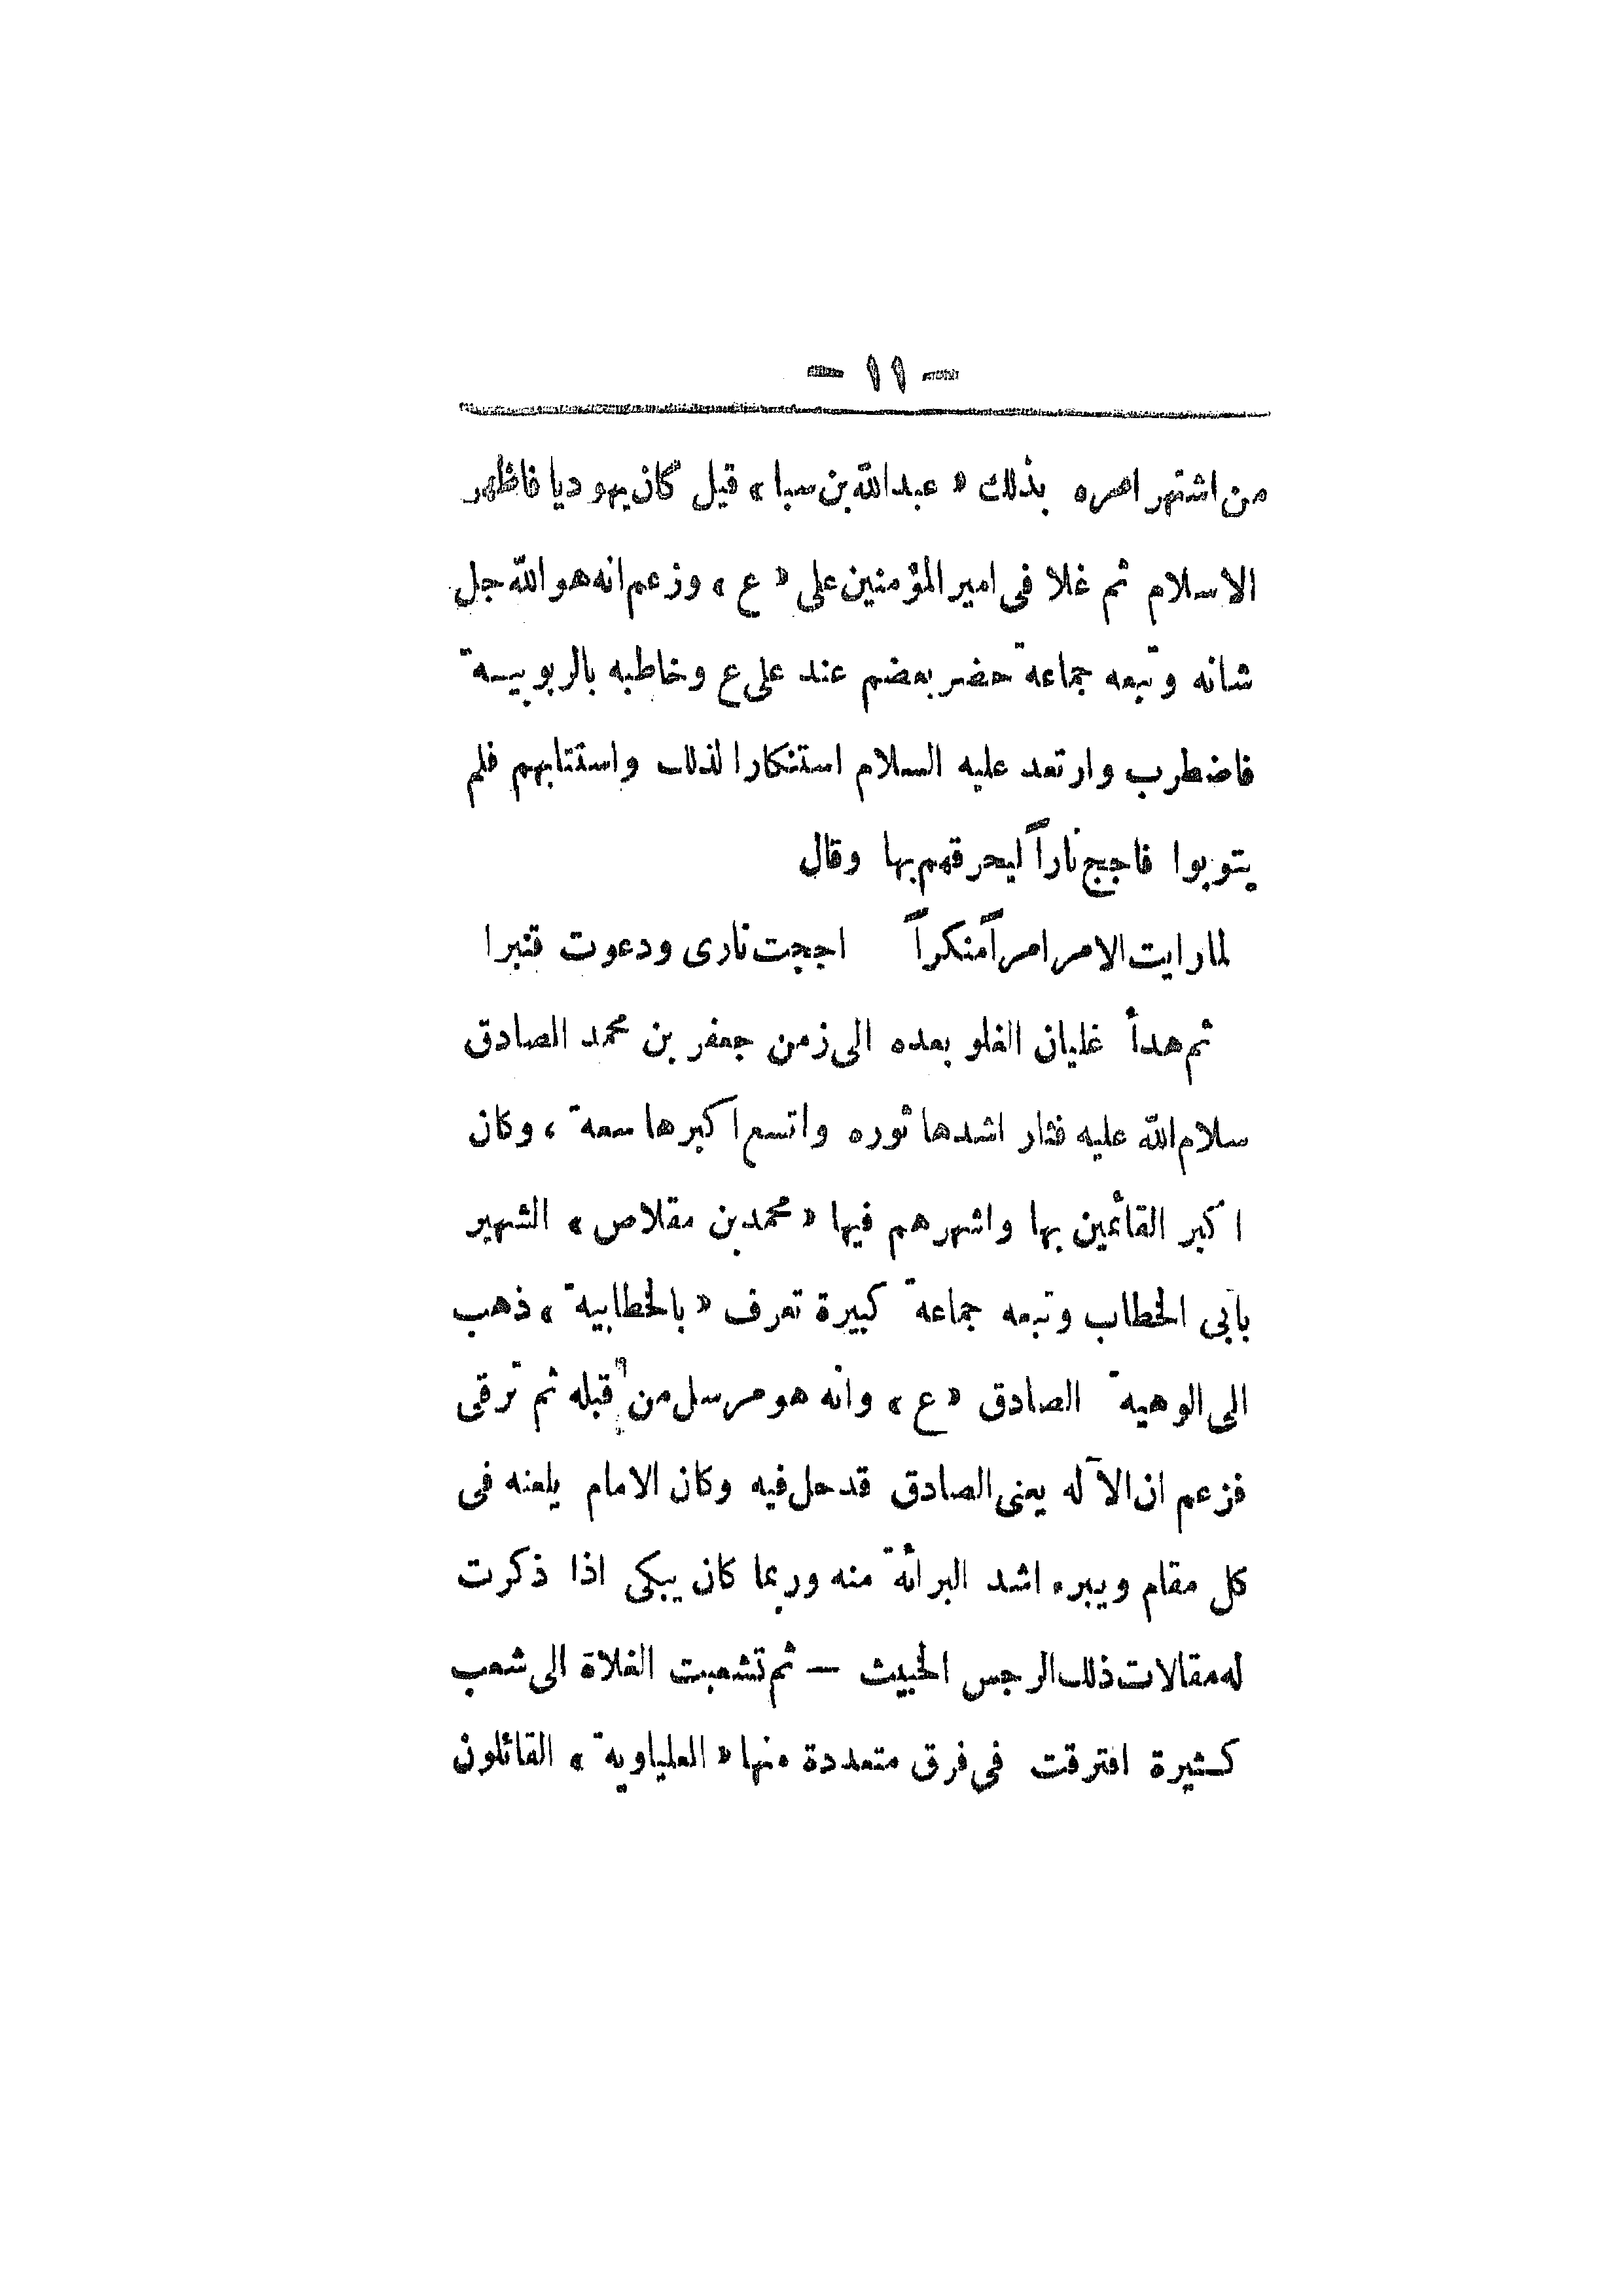 - ١١ -
من اشتهر امره بذلك « عبدالله بن سبا » قيل كان يهوديا فاظهر
الاسلام ثم غلا في امير المؤمنين على « ع » وزعم انه هو الله جل
شانه وتبعه جماعة حضر بعضم عند على ع وخاطبه بالربوبيــة
فاضطرب وارتعد عليه السلام استنكارا لذلك واستتابهم فلم
يتوبوا فاجج ناراً ليحرقهم بها وقال
لما رايت الامر امراً منكراً اججت نارى ودعوت قنبرا
ثم هدأ غليان الغلو بعده الى زمن جعفر بن محمد الصادق
سلام الله عليه فثار اشدها ثوره واتسع اكبرها سعة ، وكان
اكبر القائمين بها واشهرهم فيها « محمد بن مقلاص » الشهير
بابى الخطاب وتبعه جماعة كبيرة تعرف « بالخطابية » ذهب
الى الوهية الصادق « ع » وانه هو مرسل من قبله ثم ترقى
فزعم ان الآله يعنى الصادق قد حل فيه وكان الامام يلعنه فى
كل مقام ويبرء اشد البرائة منه وربما كان يبكى اذا ذكرت
له مقالات ذلك الرجس الخبيث — ثم تشعبت الغلاة الى شعب
كـثيرة افترقت فى فرق متعددة منها « العلياوية » القائلون